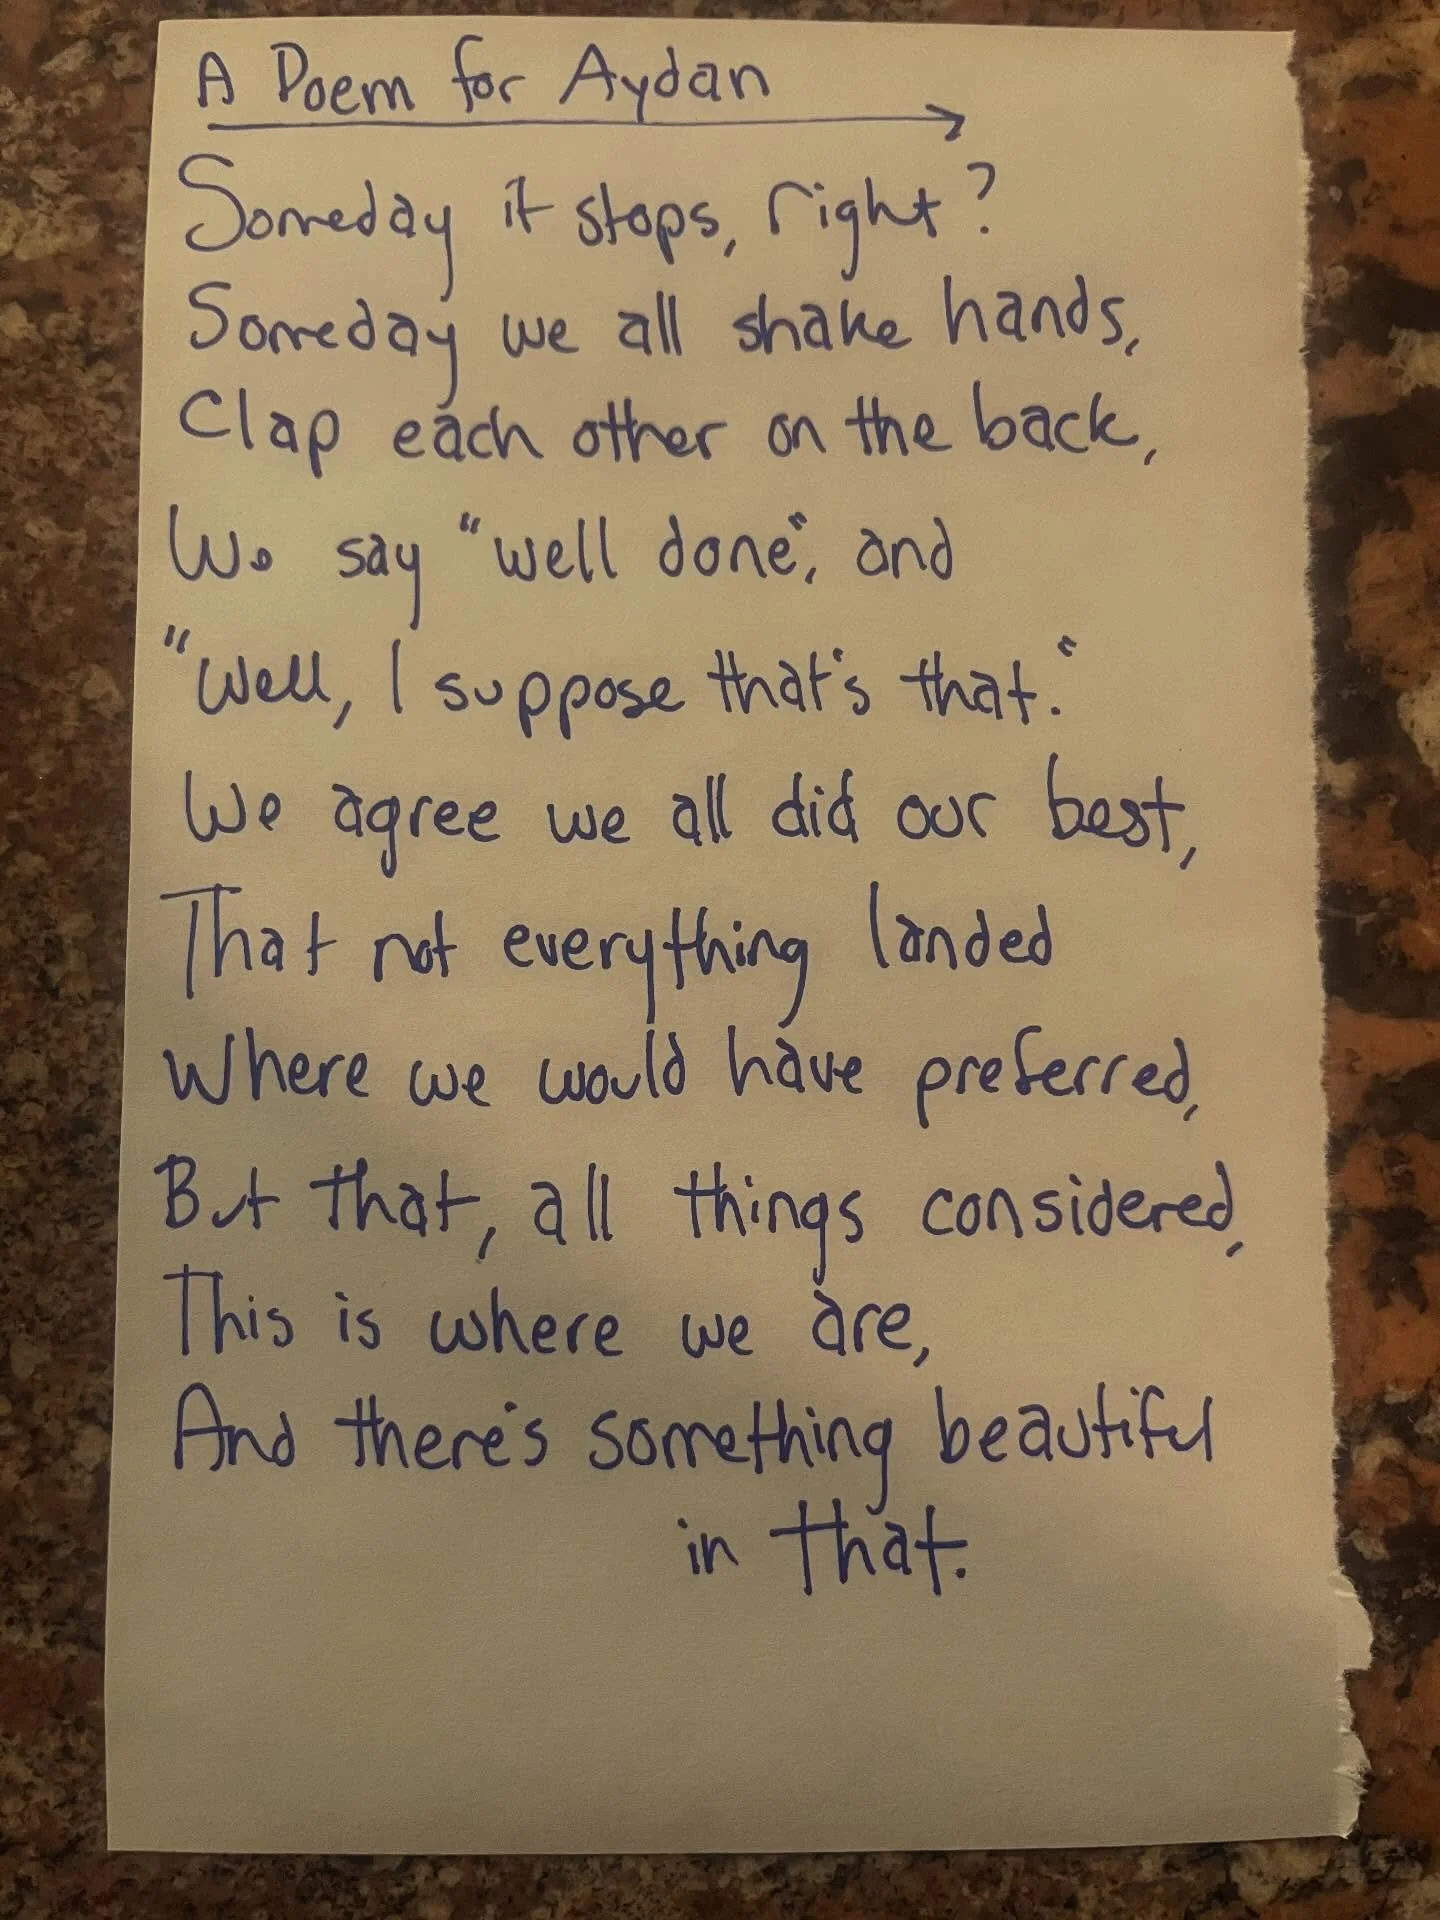 A Poem for Aydan
Someday it stops, right?
Someday we all shake hands,
Clap each other on the back,
We say "well done", and
"Well, I suppose that's that."
We agree we all did our best,
That not everything landed
Where we would have preferred,
But that, all things considered,
This is where we are,
And there's something beautiful
in that.